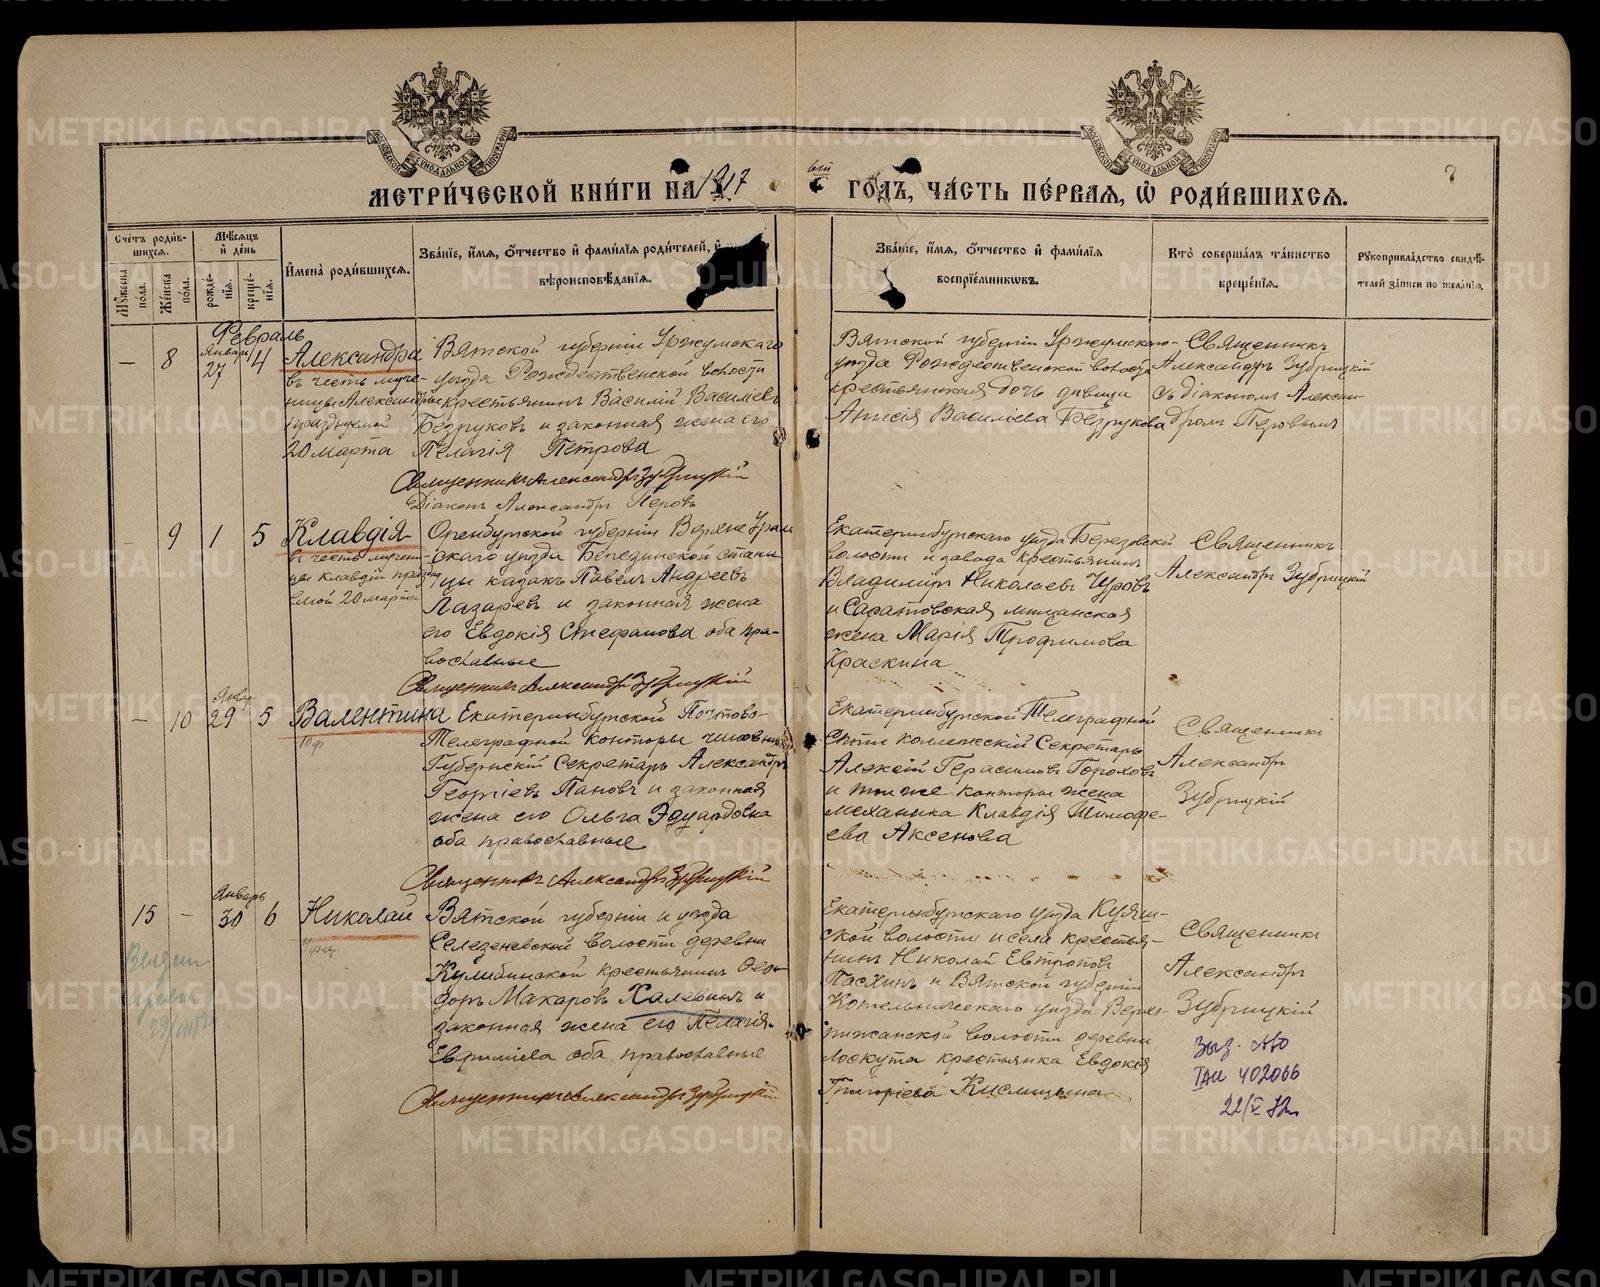 МЕТРИ́ЧЕСКОЙ КНИ́ГИ НА 1917
ый ГО́ДЪ, ЧА́СТЬ ПЕ́РВАЯ, Ѽ РОДИ́ВШИХСЯ.
Сче́тъ роди́вшихся.
Му́жеска по́ла.
Же́нска по́ла.
Мѣ́сяцъ и де́нь
рожде́нія.
креще́нія.
Имена̀ роди́вшихся.
Зва́ніе, и́мя, о́тчество и фами́лія роди́телей, и
вѣроисповѣ́данія.
Зва́ніе, и́мя, о́тчество и фами́лія
воспріе́мниковъ.
Кто̀ соверша́лъ та́инство
креще́нія.
Рукоприкла́дство свидѣ́-
телей за́писи по жела́нію.
Февраль
— 8 Января 27 4
Александра
въ честь муче-
ницы Александры
празднуемой
20 марта
Вятской губерніи Уржумскаго
уезда Рождественской волости
крестьянинъ Василій Василіевъ
Безруковъ и законная жена его
Пелагія Петрова
Священникъ Александръ Зубрицкій
Діаконъ Александръ Перовъ
Вятской губерніи Уржумскаго
уезда Рождественской волости
крестьянская дочь девица
Анисія Василіева Безрукова
Священникъ
Александръ Зубрицкій
съ діакономъ Алексан-
дромъ Перовымъ
9 1 5
Клавдія
въ честь мучени-
цы Клавдіи праздну
емой 20 марта
Оренбургской губерніи Верхне Урал
скаго уезда Березинской стани
цы казакъ Павелъ Андреевъ
Лазаревъ и законная жена
его Евдокія Стефанова оба пра-
вославные
Священникъ Александръ Зубрицкій
Екатеринбургскаго уезда Березовской
волости и завода крестьянинъ
Владимиръ Николаевъ Чуровъ
и Саратовская мещанская
жена Марія Трофимова
Краскина
Священникъ
Александръ Зубрицкій
— 10 Январ. 29 5
Валентина
Екатеринбургской Почтово-
Телеграфной конторы чиновникъ
Губернскій Секретарь Александръ
Георгіевъ Пановъ и законная
жена его Ольга Эдуардовна
оба православные
Священникъ Александръ Зубрицкій
Екатеринбургской Телеграфной
коллежскій Секретарь
Алексій Герасимовъ Гороховъ
и той же конторы жена
механика Клавдія Тимофе-
ева Аксенова
Священникъ
Александръ
Зубрицкій
15 — Январь 30 6
Николай
Вятской губерніи и уезда
Селезеневской волости деревни
Кулибинской крестьянинъ Фео-
доръ Макаровъ Халевинъ и
законная жена его Пелагія
Евфиміева оба православные
Священникъ Александръ Зубрицкій
Екатеринбургскаго уезда Куяш-
ской волости и села крестья-
нинъ Николай Евтроповъ
Пасхинъ и Вятской губерніи
Котельническаго уезда Верхо-
пижанской волости деревни
Лоскута крестьянка Евдокія
Григоріева Кислицына
Священникъ
Александръ
Зубрицкій
402066
22/V 72г
METRIKI.GASO-URAL.RU